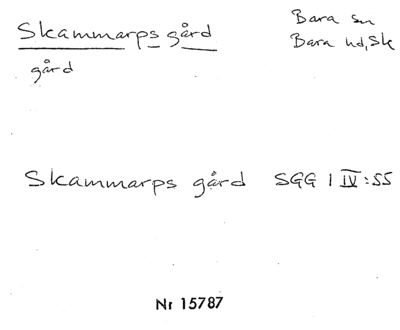 Skammarps gård
Bara sn
Bara hd, Sk
gård
Skammarps gård SGG 1 IV:55
Nr 15787